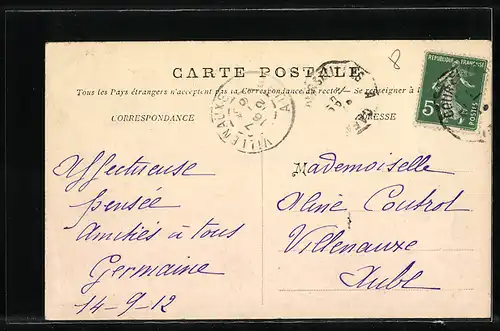 8
CARTE POSTALE
Tous les Pays étrangers n'acceptent pas la Correspondance au recto. Se renseigner à la
CORRESPONDANCE
ADRESSE
REPUBLIQUE FRANÇAISE
5
POSTES
VILLENAUXE
Affectueuse
pensée
Amitiés à tous
Germaine
14-9-12
Mademoiselle
Aline Coutrot
Villenauxe
Aube